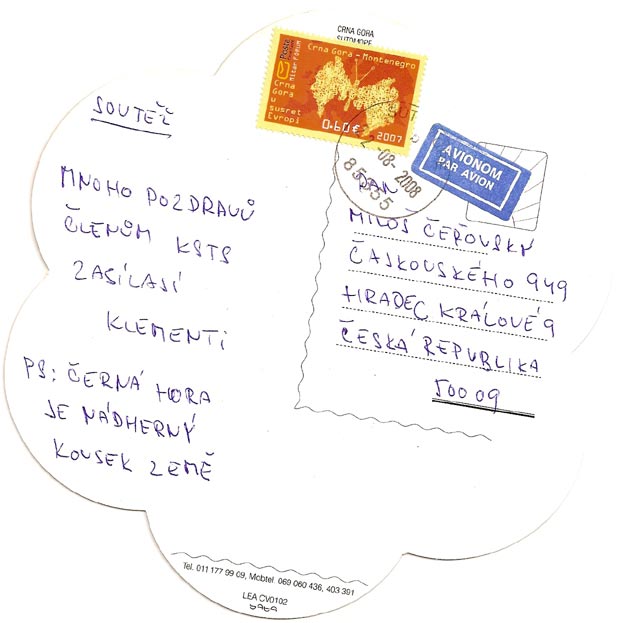 CRNA GORA
SUTOMORE
Pošta
filter FORUM
Crna Gora - Montenegro
Crna
Gora
u
susret
Evropi
0.60€
2007
-08-2008
85355
AVIONOM
PAR AVION
SOUTĚŽ
MNOHO POZDRAVŮ
ČLENŮM KSTS
ZASÍLAJÍ
KLEMENTI
PS: ČERNÁ HORA
JE NÁDHERNÝ
KOUSEK ZEMĚ
PAN
MILOŠ ČEŘOVSKÝ
ČAJKOVSKÉHO 949
HRADEC KRÁLOVÉ 9
ČESKÁ REPUBLIKA
500 09
Tel. 011 177 99 09, Mobtel. 069 060 436, 403 391
LEA CV0102